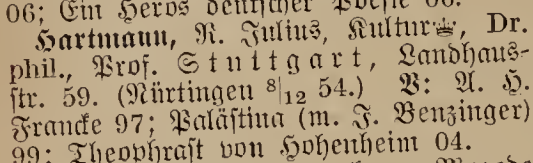 06; Ein Heros deutscher Poesie 06.
Hartmann, R. Julius, Kultur, Dr.
phil., Prof. Stuttgart, Landhaus-
str. 59. (Nürtingen 8|12 54.) V: A. H.
Francke 97; Palästina (m. J. Benzinger)
99; Theophrast von Hohenheim 04.